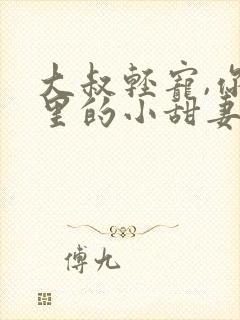 大叔輕寵,你
里的小甜妻
傅九